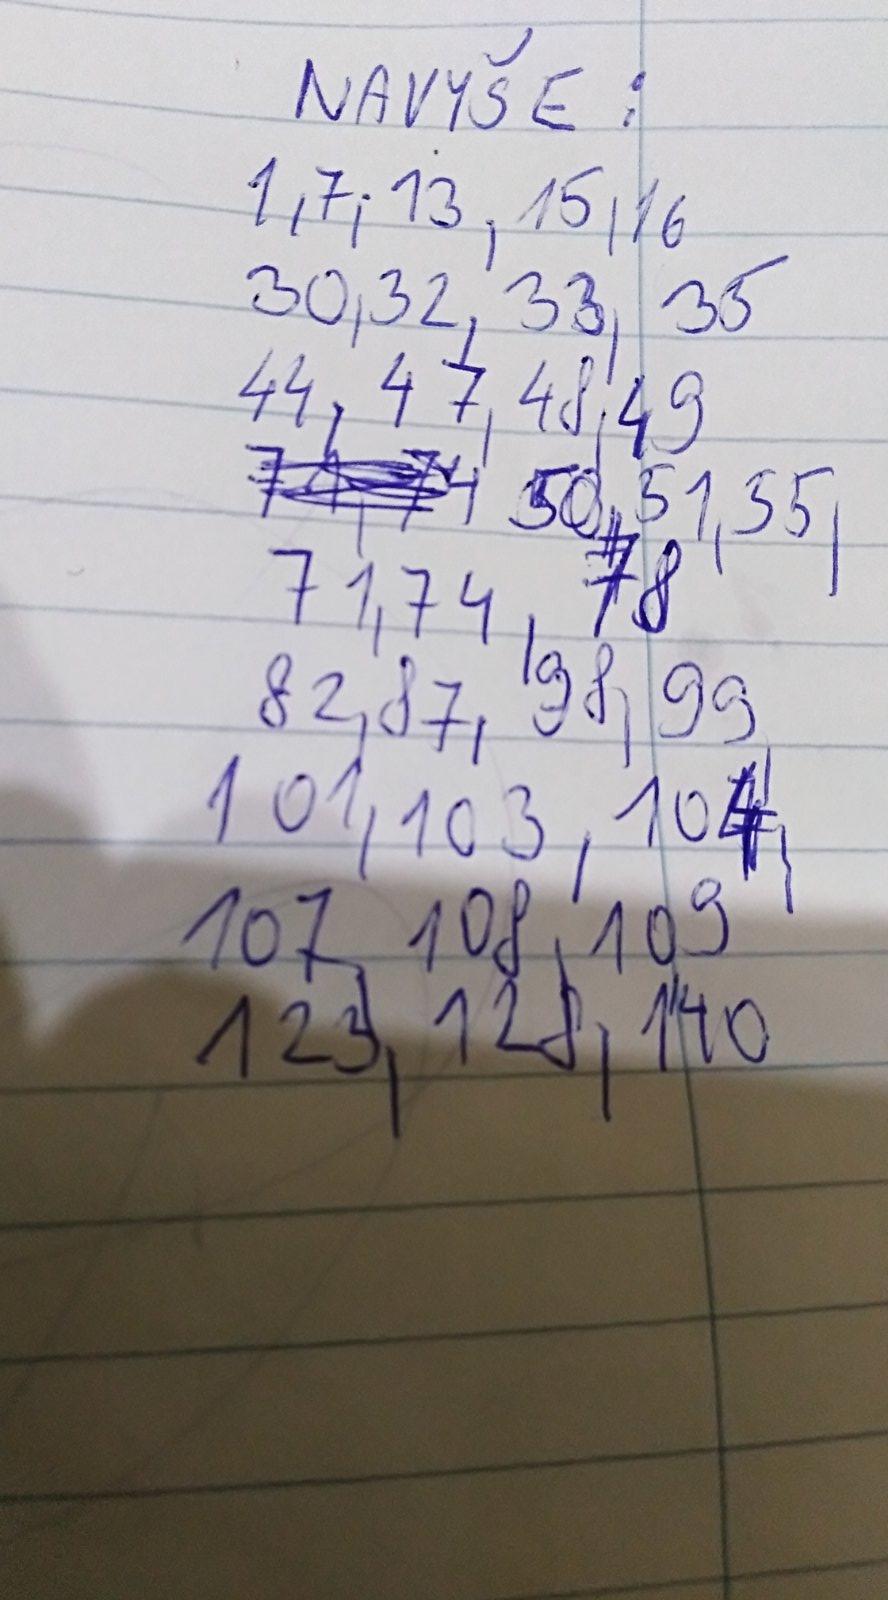 NAVYŠE:
1,7,13,15,16
30,32,33,35
44,47,48,49
50,51,55,
71,74,78
82,87,98,99,
101,103,104,
107,108,109
123,128,140